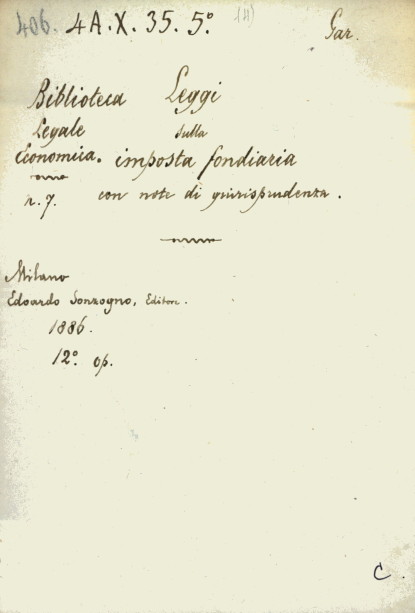 406. 4A.X.35.5º (4) Gar.
Biblioteca Leggi
Legale sulla
Economica. imposta fondiaria
n. 7. con note di giurisprudenza.
Milano
Edoardo Sonzogno, Editore.
1886.
12º. op.
C.